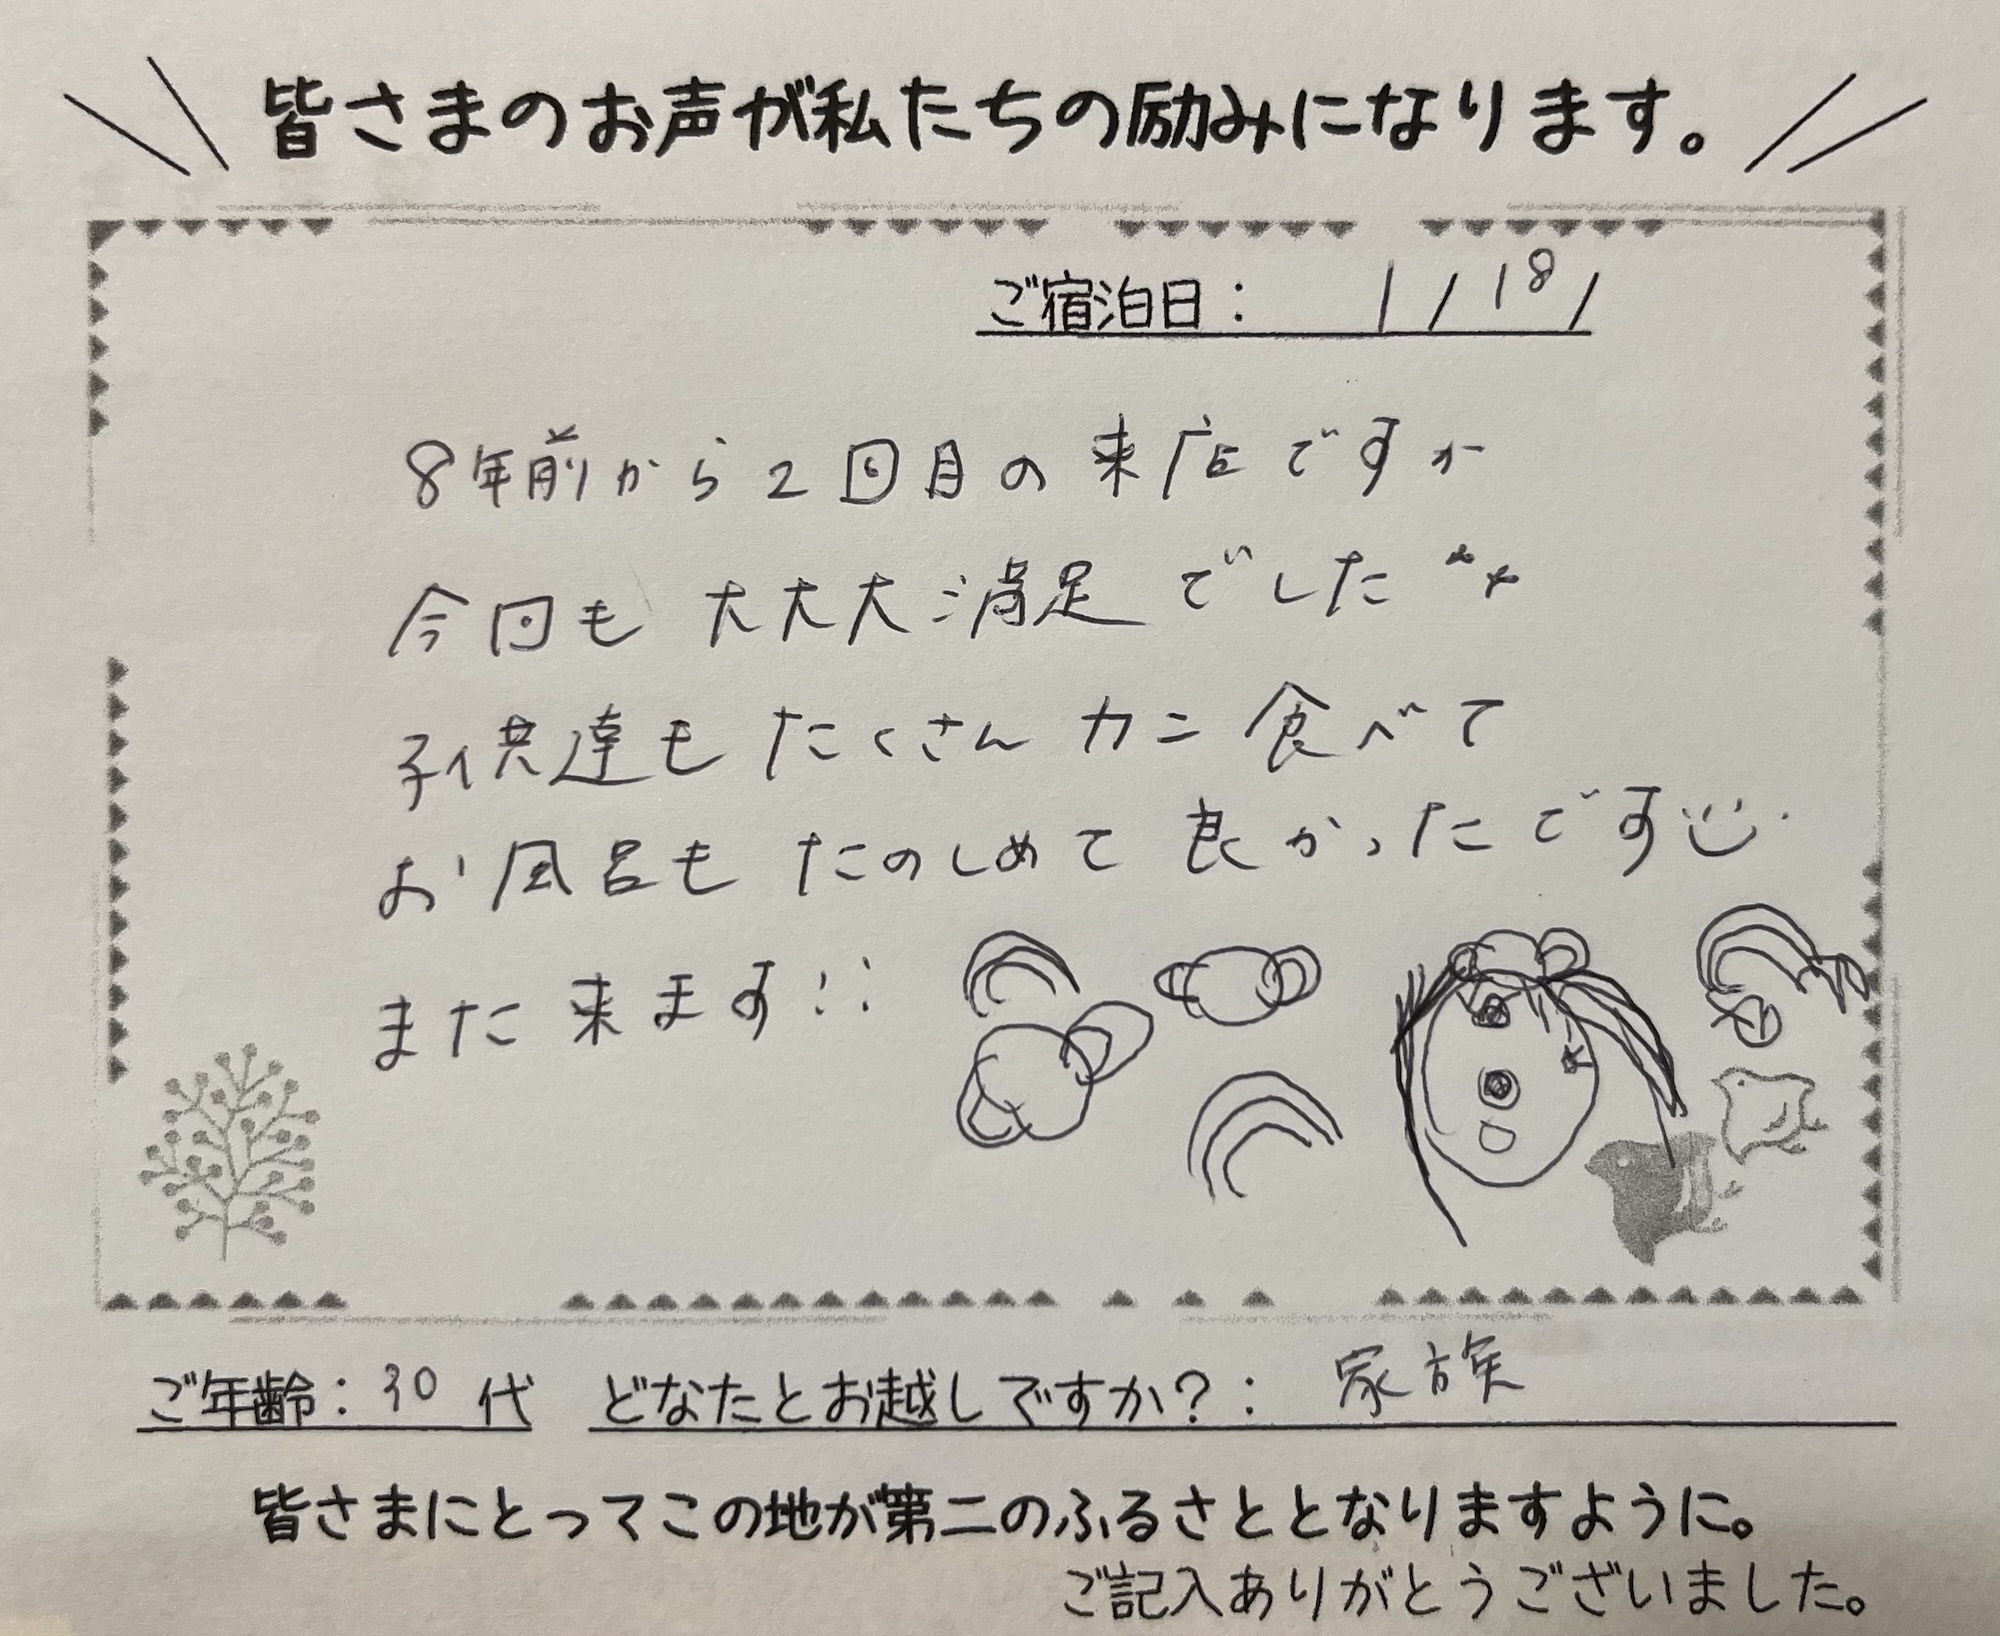 皆さまのお声が私たちの励みになります。
ご宿泊日: 1/18/
8年前から2回目の来店ですが
今回も大大大満足でした
子供達もたくさんカニ食べて
お風呂もたのしめて良かったです
また来ます!!
ご年齢: 30代 どなたとお越しですか?: 家族
皆さまにとってこの地が第二のふるさととなりますように。
ご記入ありがとうございました。